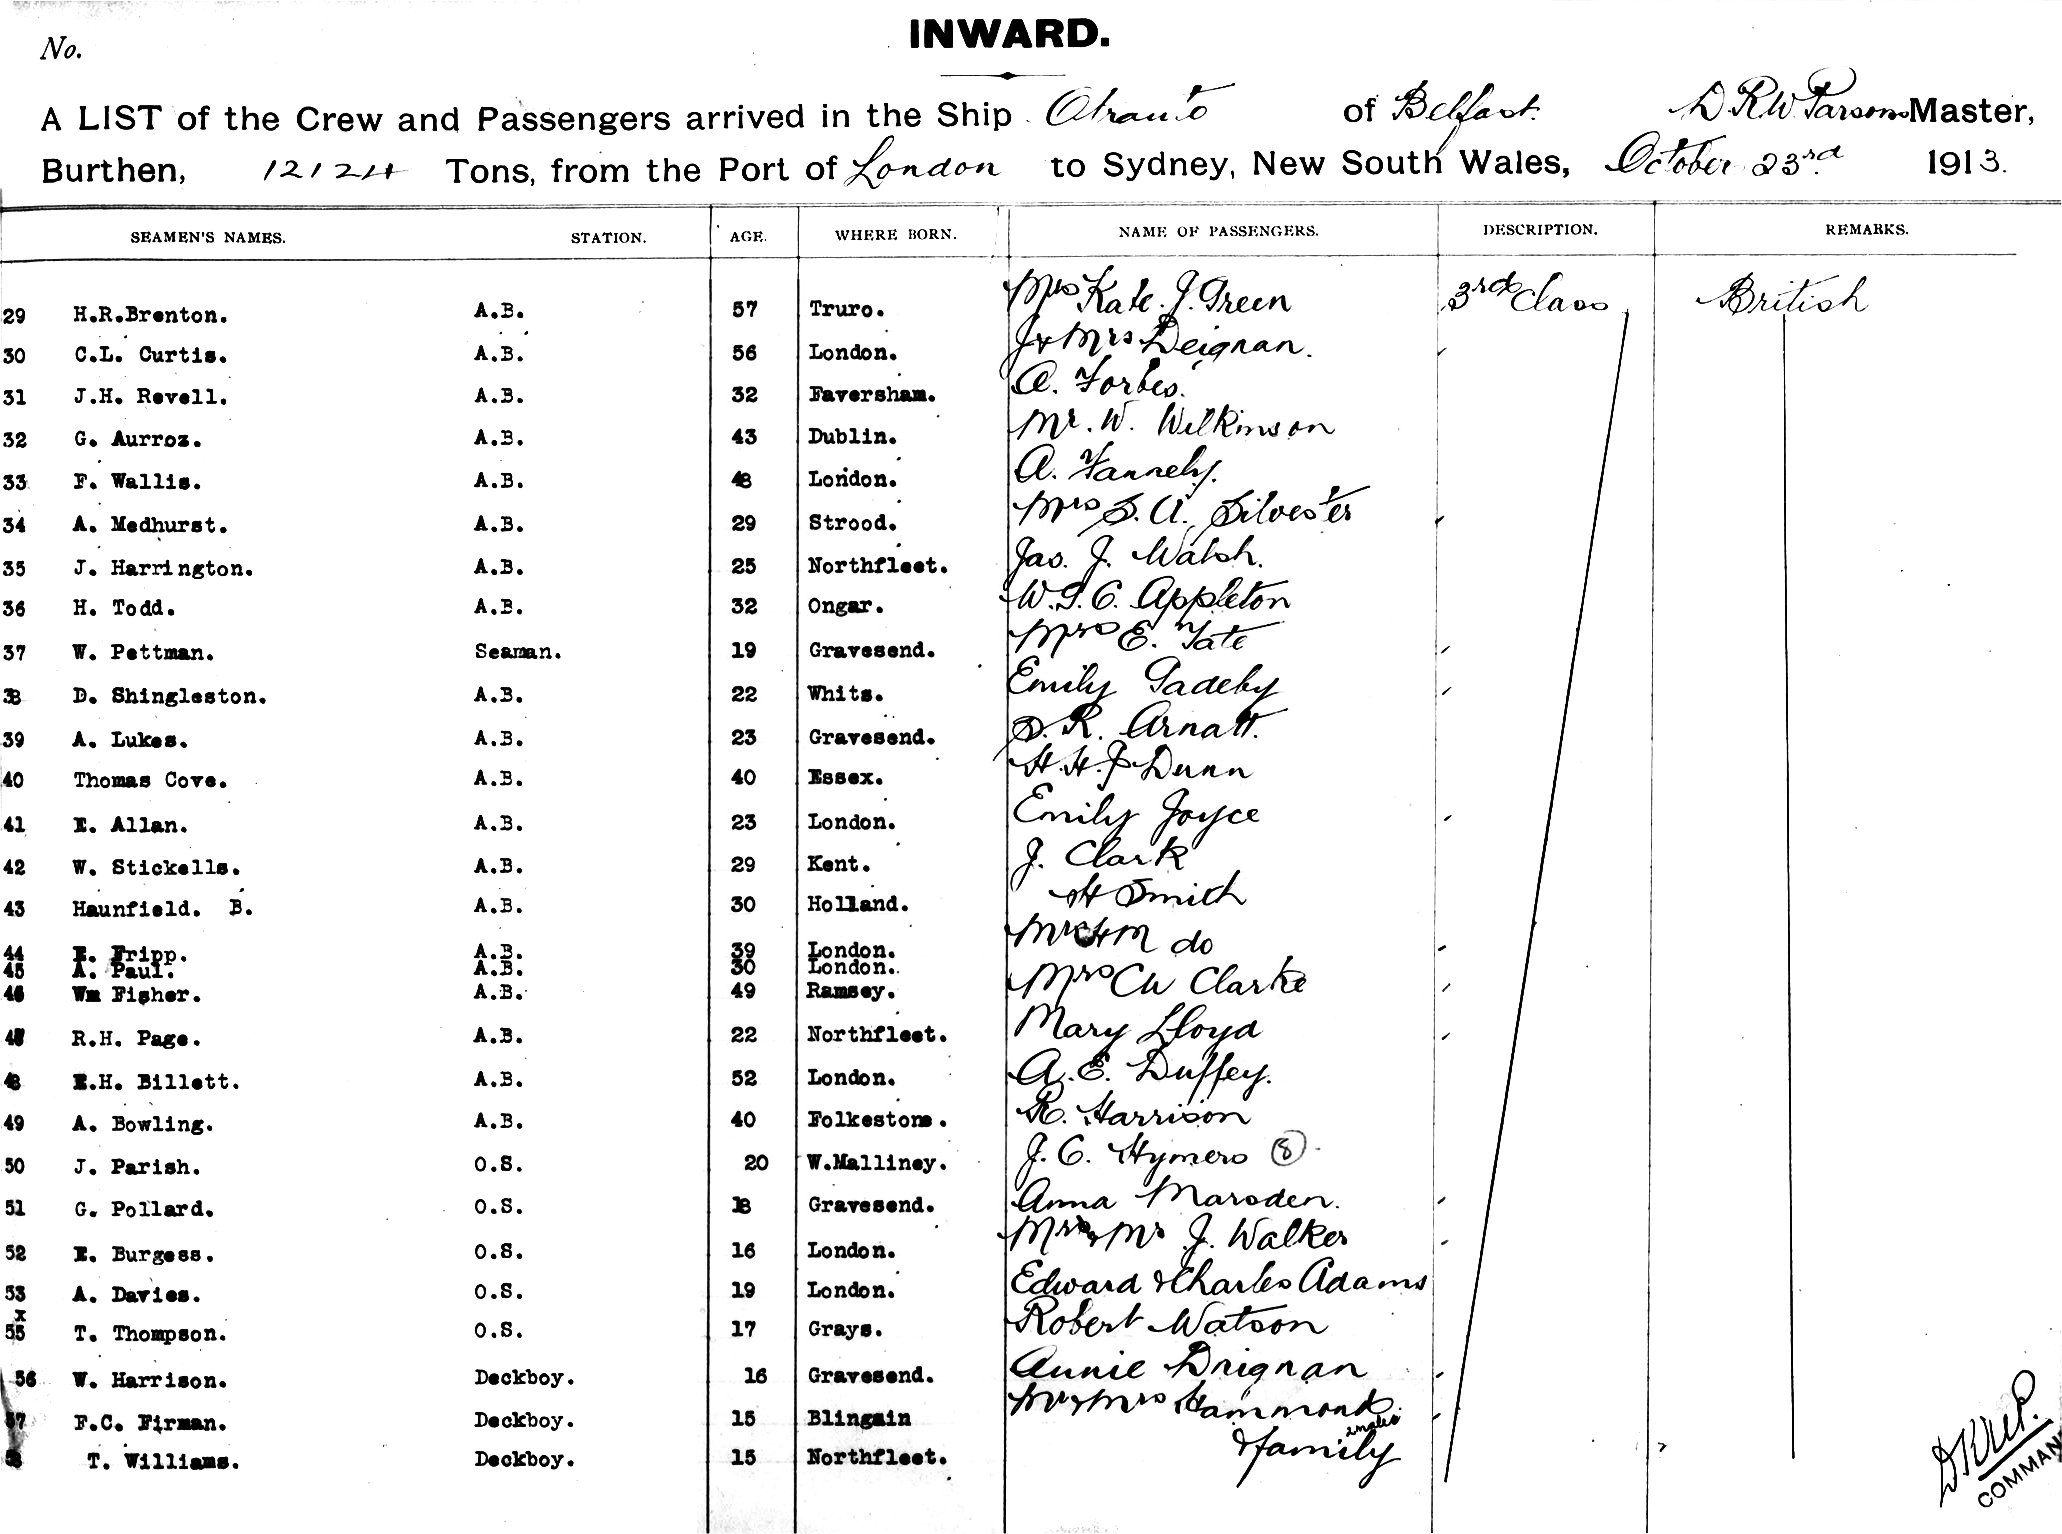 INWARD.
No.
A LIST of the Crew and Passengers arrived in the Ship Otranto of Belfast. D RW Parsons Master,
Burthen, 12124 Tons, from the Port of London to Sydney, New South Wales, October 23rd 1913.
SEAMEN'S NAMES. STATION. AGE. WHERE BORN. NAME OF PASSENGERS. DESCRIPTION. REMARKS.
29 H.R.Brenton. A.B. 57 Truro. Mrs Kate. J. Green 3rd Class British
30 C.L. Curtis. A.B. 56 London. J & Mrs Deignan.
31 J.H. Revell. A.B. 32 Faversham. A. Forbes.
32 G. Aurroz. A.B. 43 Dublin. Mr. W. Wilkinson
33 F. Wallis. A.B. 48 London. A.
34 A. Medhurst. A.B. 29 Strood. Mrs S. A. Silvester
35 J. Harrington. A.B. 25 Northfleet. Jas. J. Walsh.
36 H. Todd. A.B. 32 Ongar. W. G. C. Appleton
37 W. Pettman. Seaman. 19 Gravesend. Mrs E. Tate
38 D. Shingleston. A.B. 22 Whits. Emily Gadeby
39 A. Lukes. A.B. 23 Gravesend. S. R. Arnatt.
40 Thomas Cove. A.B. 40 Essex. H. H. J. Dunn
41 E. Allan. A.B. 23 London. Emily Joyce
42 W. Stickells. A.B. 29 Kent. J. Clark
43 Haunfield. B. A.B. 30 Holland. H Smith
44 E. Fripp. A.B. 39 London. do
45 A. Paul. A.B. 30 London.
46 Wm Fisher. A.B. 49 Ramsey. Mrs CW Clarke
47 R.H. Page. A.B. 22 Northfleet. Mary Lloyd
48 E.H. Billett. A.B. 52 London. A. E. Duffey.
49 A. Bowling. A.B. 40 Folkestone. R. Harrison
50 J. Parish. O.S. 20 W.Malliney. J. C. Hymers 8
51 G. Pollard. O.S. 18 Gravesend. Anna Marsden.
52 E. Burgess. O.S. 16 London. Mrs & Mr J. Walker
53 A. Davies. O.S. 19 London. Edward & Charles Adams
x
55 T. Thompson. O.S. 17 Grays. Robert Watson
56 W. Harrison. Deckboy. 16 Gravesend. Annie Drignan
57 F.C. Firman. Deckboy. 15 Blingain Mr & Mrs Hammond
58 T. Williams. Deckboy. 15 Northfleet. & family
COMMAN